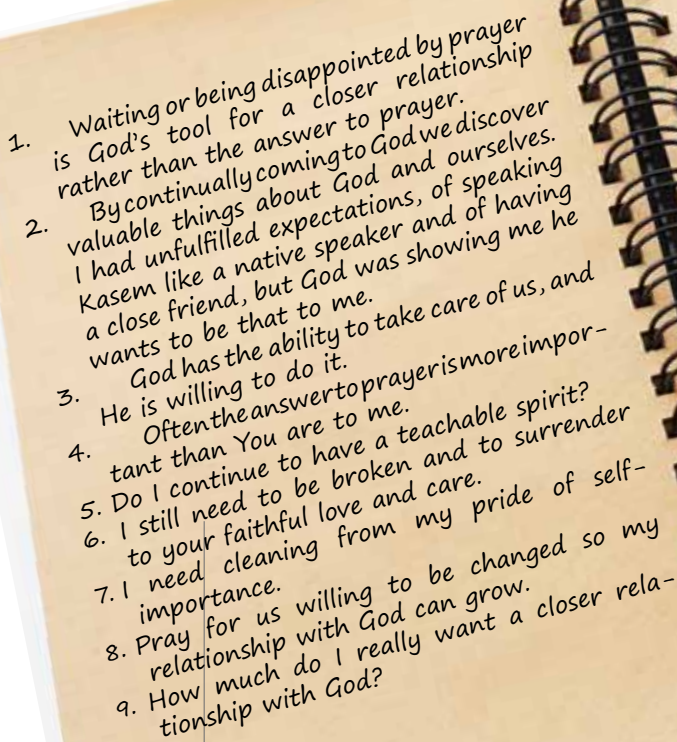 1. Waiting or being disappointed by prayer
is God's tool for a closer relationship
rather than the answer to prayer.
2. By continually coming to God we discover
valuable things about God and ourselves.
I had unfulfilled expectations, of speaking
Kasem like a native speaker and of having
a close friend, but God was showing me he
wants to be that to me.
3. God has the ability to take care of us, and
He is willing to do it.
4. Often the answer to prayer is more impor-
tant than You are to me.
5. Do I continue to have a teachable spirit?
6. I still need to be broken and to surrender
to your faithful love and care.
7. I need cleaning from my pride of self-
importance.
8. Pray for us willing to be changed so my
relationship with God can grow.
9. How much do I really want a closer rela-
tionship with God?